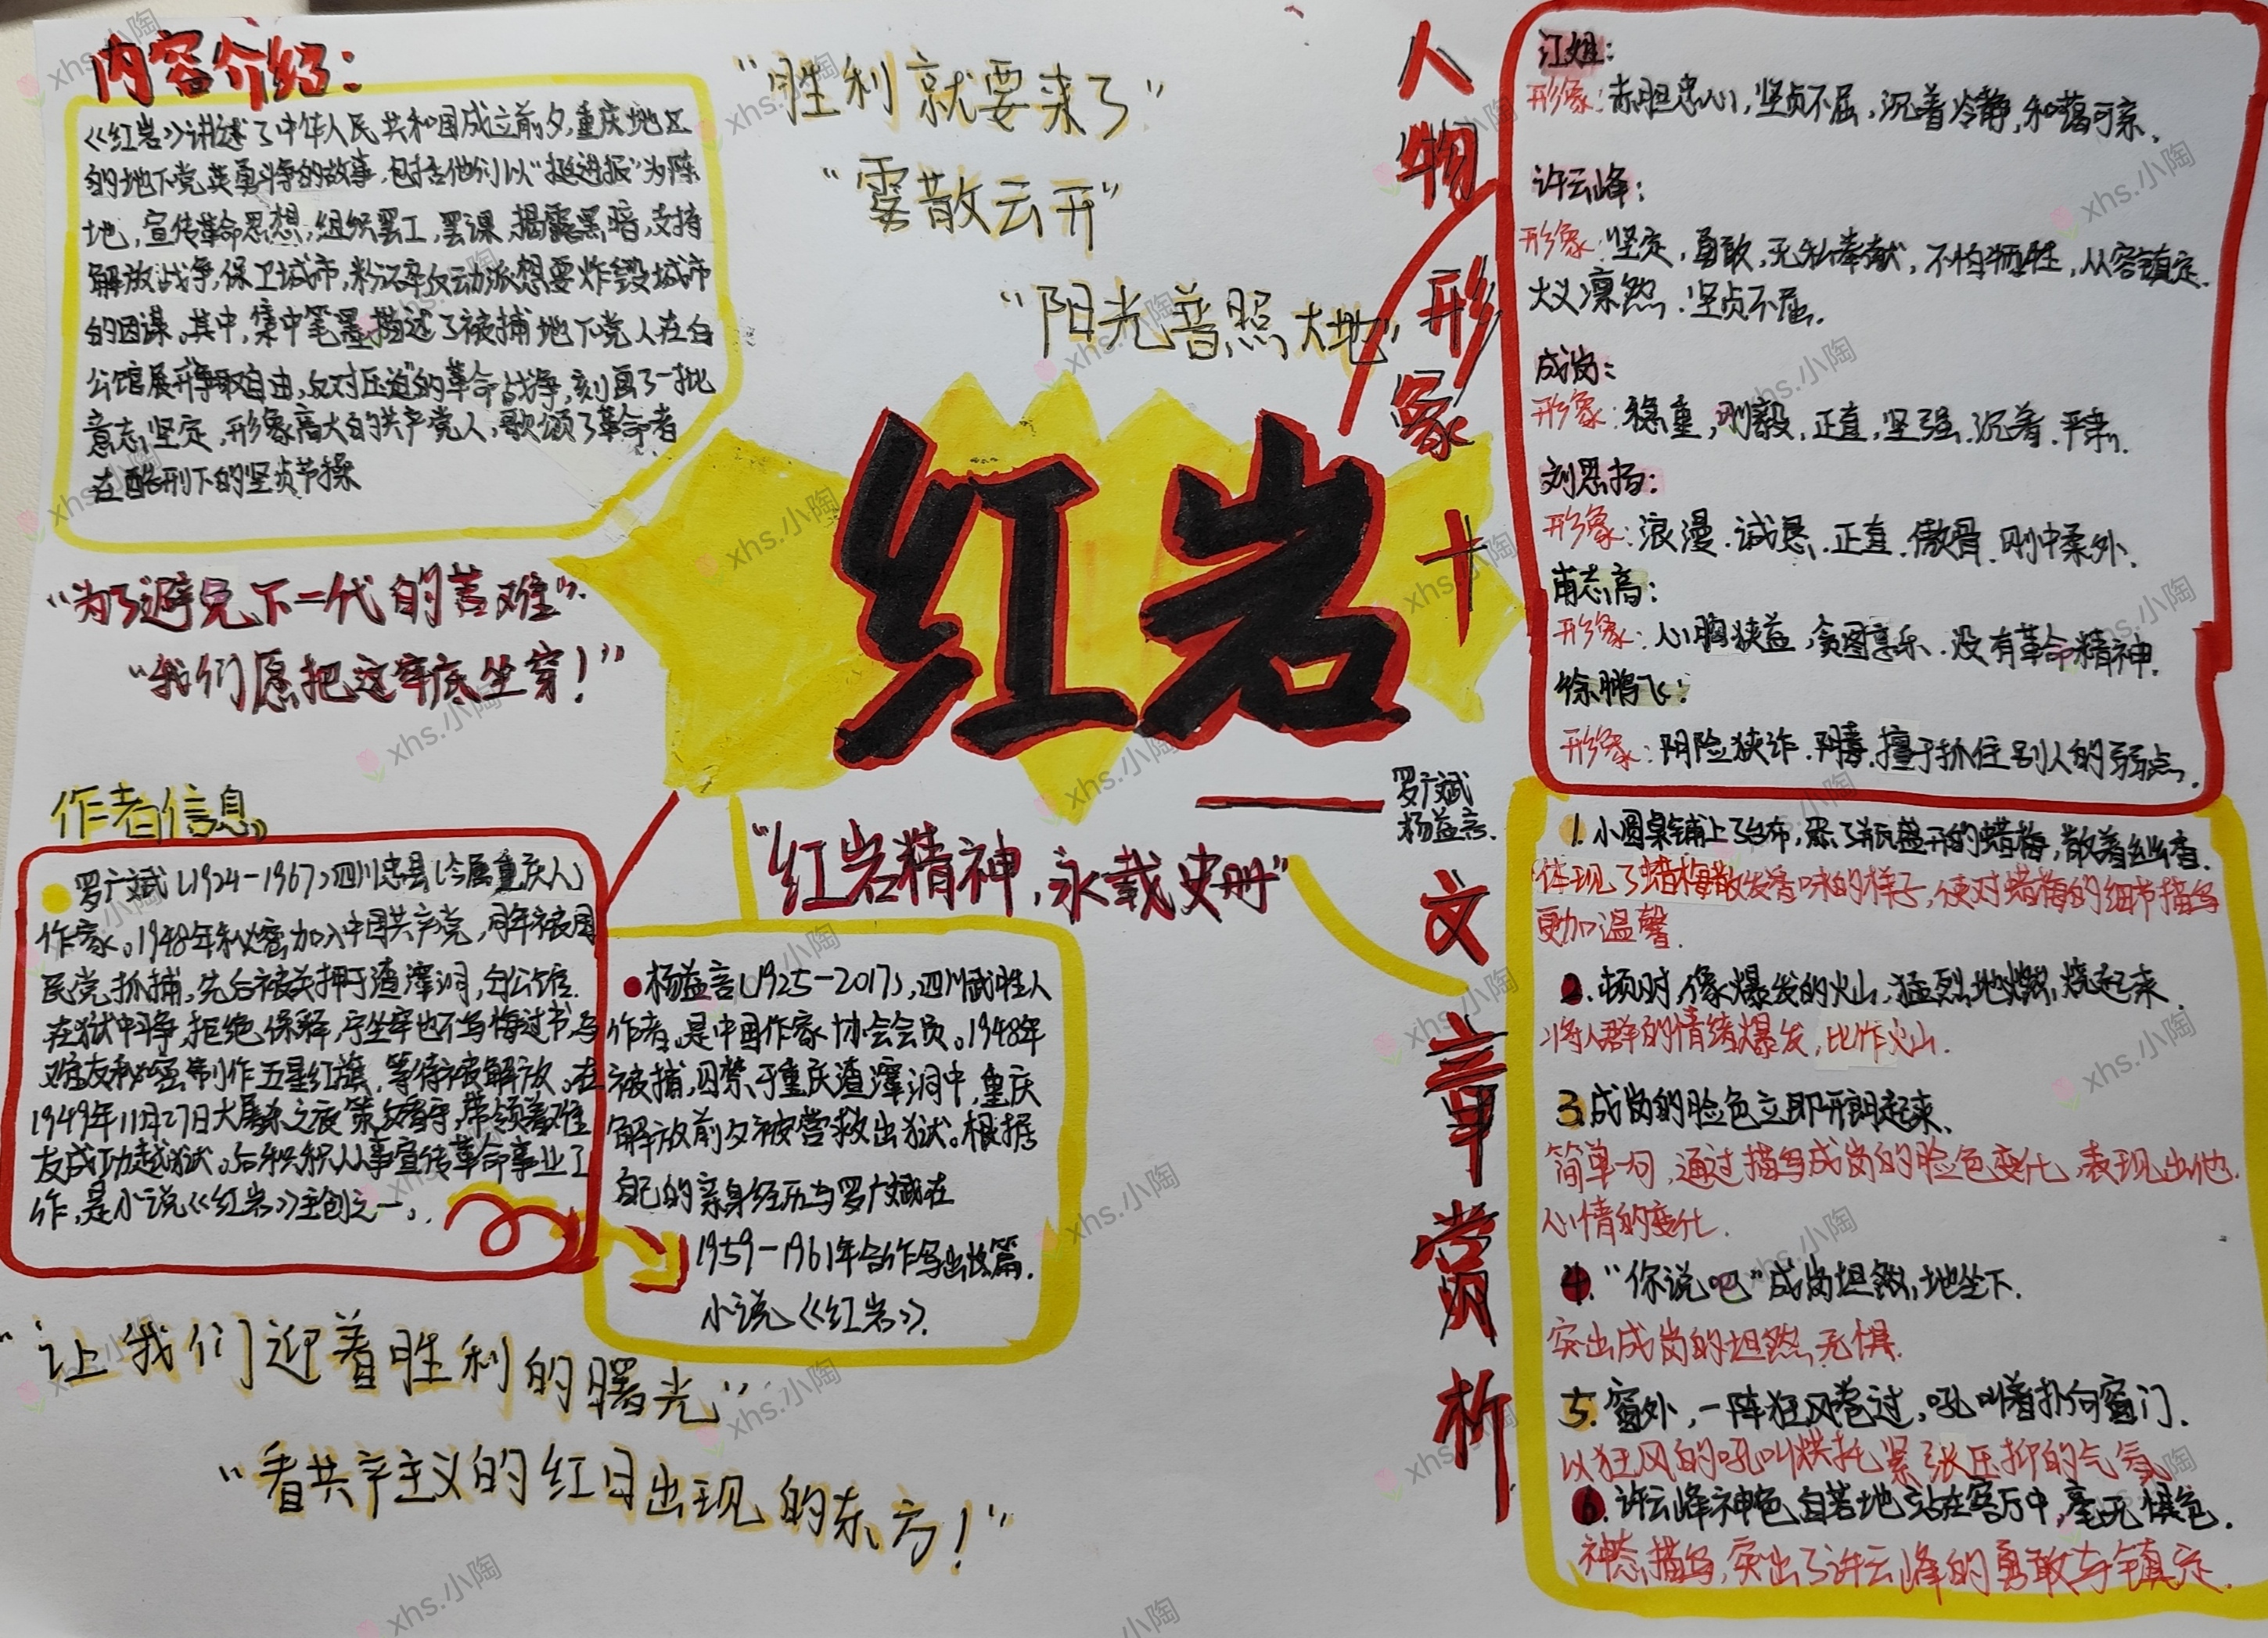 内容介绍：
《红岩》讲述了中华人民共和国成立前夕，重庆地区
的地下党英勇斗争的故事，包括他们以“挺进报”为阵
地，宣传革命思想，组织罢工，罢课，揭露黑暗，支持
解放战争，保卫城市，粉碎反动派想要炸毁城市
的因谋。其中，集中笔墨描述了被捕地下党人在白
公馆展开争取自由，反对压迫的革命战争，刻画了一批
意志坚定，形象高大的共产党人，歌颂了革命者
在酷刑下的坚贞节操
“胜利就要来了”
“雾散云开”
“阳光普照大地”
“为了避免下一代的苦难”
“我们愿把这牢底坐穿！”
红岩
罗广斌
杨益言
“红岩精神，永载史册”
作者信息
罗广斌（1924-1967）四川忠县（今属重庆人）
作家。1948年秘密加入中国共产党，同年被国
民党抓捕，先后被关押于渣滓洞，白公馆.
在狱中斗争，拒绝保释，宁坐牢也不写悔过书，与
难友秘密制作五星红旗，等待被解放。在
1949年11月27日大屠杀之夜策反看守，带领着难
友成功越狱。后积积从事宣传革命事业工
作，是小说《《红岩》》主创之一。
杨益言（1925-2017），四川武胜人
作者。是中国作家协会会员。1948年
被捕，囚禁于重庆渣滓洞中，重庆
解放前夕被营救出狱。根据
自己的亲身经历与罗广斌在
1959-1961年合作写出长篇.
小说《《红岩》》.
“让我们迎着胜利的曙光”
“看共产主义的红日出现的东方！”
人物形象
江姐：
形象：赤胆忠心，坚贞不屈，沉着冷静，和蔼可亲.
许云峰：
形象：坚定，勇敢，无私奉献，不怕牺牲，从容镇定.
大义凛然.坚贞不屈.
成岗：
形象：稳重，刚毅，正直，坚强.沉着.严肃.
刘思扬：
形象：浪漫.诚恳.正直.傲骨.刚中柔外.
甫志高：
形象：心胸狭益，贪图享乐.没有革命精神.
徐鹏飞：
形象：阴险狭诈.阴毒.擅于抓住别人的弱点.
+
文章赏析
1.小圆桌铺上了台布，添了瓶盛开的蜡梅，散着幽香.
体现了蜡梅散发香味的样子，使对蜡梅的细节描写
更加温馨.
2.顿时，像爆发的火山，猛烈地燃烧起来.
将人群的情绪爆发，比作火山.
3.成岗的脸色立即开朗起来.
简单一句，通过描写成岗的脸色变化，表现出他
心情的变化.
4.“你说吧”成岗坦然地坐下.
突出成岗的坦然无惧.
5.窗外，一阵狂风卷过，吼叫着扑向窗门.
以狂风的吼叫烘托紧张压抑的气氛
6.许云峰神色自若地站在客厅中，毫无惧色.
神态描写，突出了许云峰的勇敢与镇定.
xhs.小陶